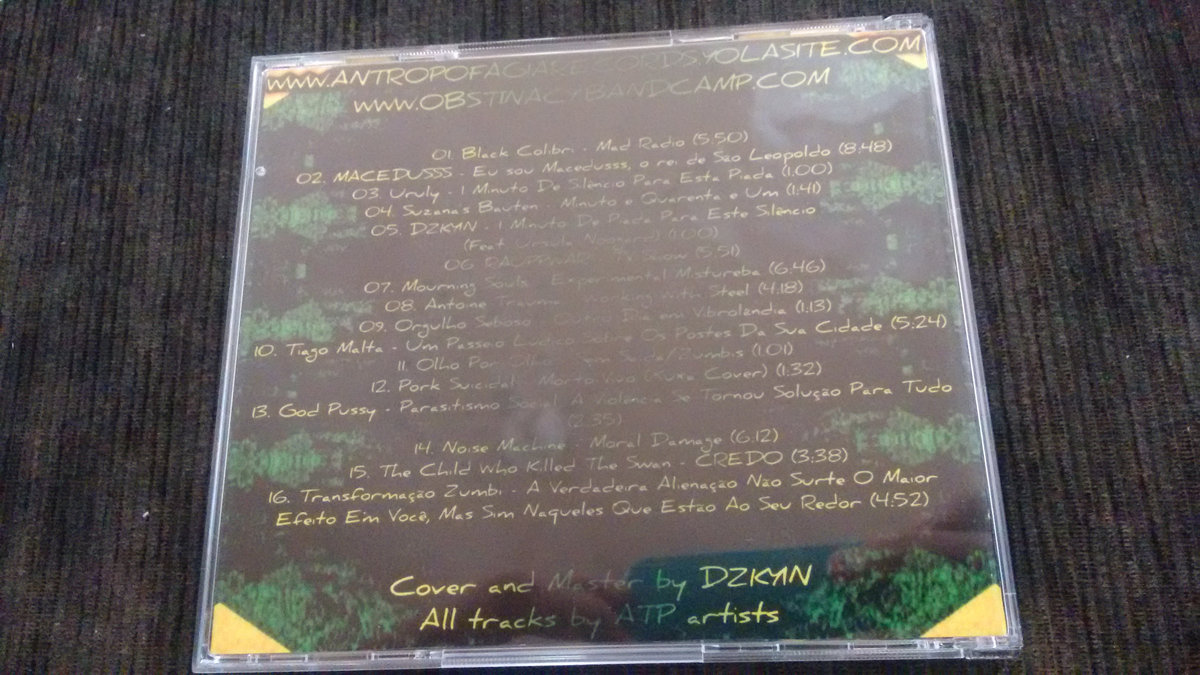 www.ANTROPOFAGIARECORDS.YOLASITE.COM
www.OBSTINACY.BANDCAMP.COM
01. Black Colibri - Mad Radio (5:50)
02. MACEDUSSS - Eu sou Macedusss, o rei de São Leopoldo (8:48)
03. Uruly - 1 Minuto De Silêncio Para Esta Piada (1:00)
04. Suzanas Bauten - Minuto e Quarenta e Um (1:41)
05. DZKYN - 1 Minuto De Piada Para Este Silêncio
(Feat. Ursula (1:00)
06. Show (5:51)
07. Mourning Souls - Experimental Mistureba (6:46)
08. Antoine Trauma - Working With Steel (4:18)
09. Orgulho Seboso - Outro Dia em Vibrolândia (1:13)
10. Tiago Malta - Um Passeio Lúdico Sobre Os Postes Da Sua Cidade (5:24)
11. Olho Por Olho - Sem Saída/Zumbis (1:01)
12. Pork Suicidal - Morto Vivo (Xuxa Cover) (1:32)
13. God Pussy - Parasitismo Social A Violência Se Tornou Solução Para Tudo
(2:35)
14. Noise Machine - Moral Damage (6:12)
15. The Child Who Killed The Swan - CREDO (3:38)
16. Transformação Zumbi - A Verdadeira Alienação Não Surte O Maior
Efeito Em Você, Mas Sim Naqueles Que Estão Ao Seu Redor (4:52)
Cover and Master by DZKYN
All tracks by ATP artists